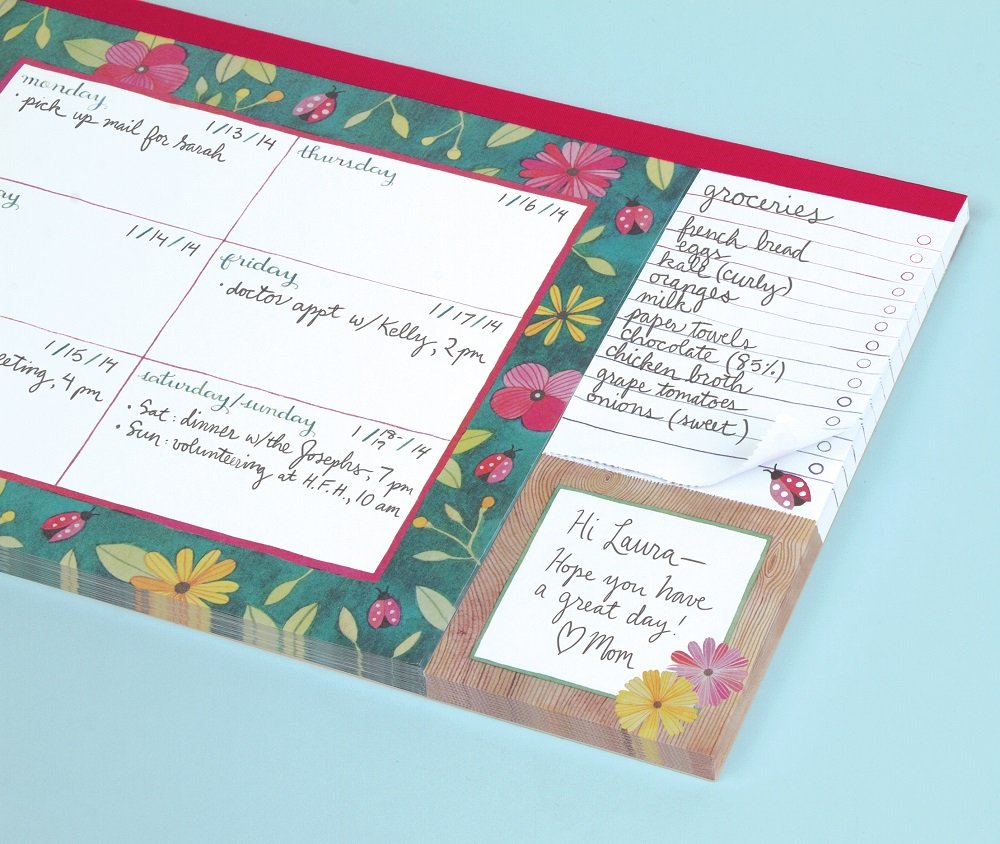 monday
1/13/14
• pick up mail for Sarah
ay
1/14/14
1/15/14
eeting, 4 pm
thursday
1/16/14
friday
1/17/14
• doctor appt w/Kelly, 2pm
saturday/sunday
1/18-19/14
• Sat: dinner w/the Josephs, 7 pm
• Sun: volunteering
at H.F.H., 10 am
groceries
french bread
eggs
kale (curly)
oranges
milk
paper towels
chocolate (85%)
chicken broth
grape tomatoes
onions (sweet)
Hi Laura—
Hope you have
a great day!
♡ Mom